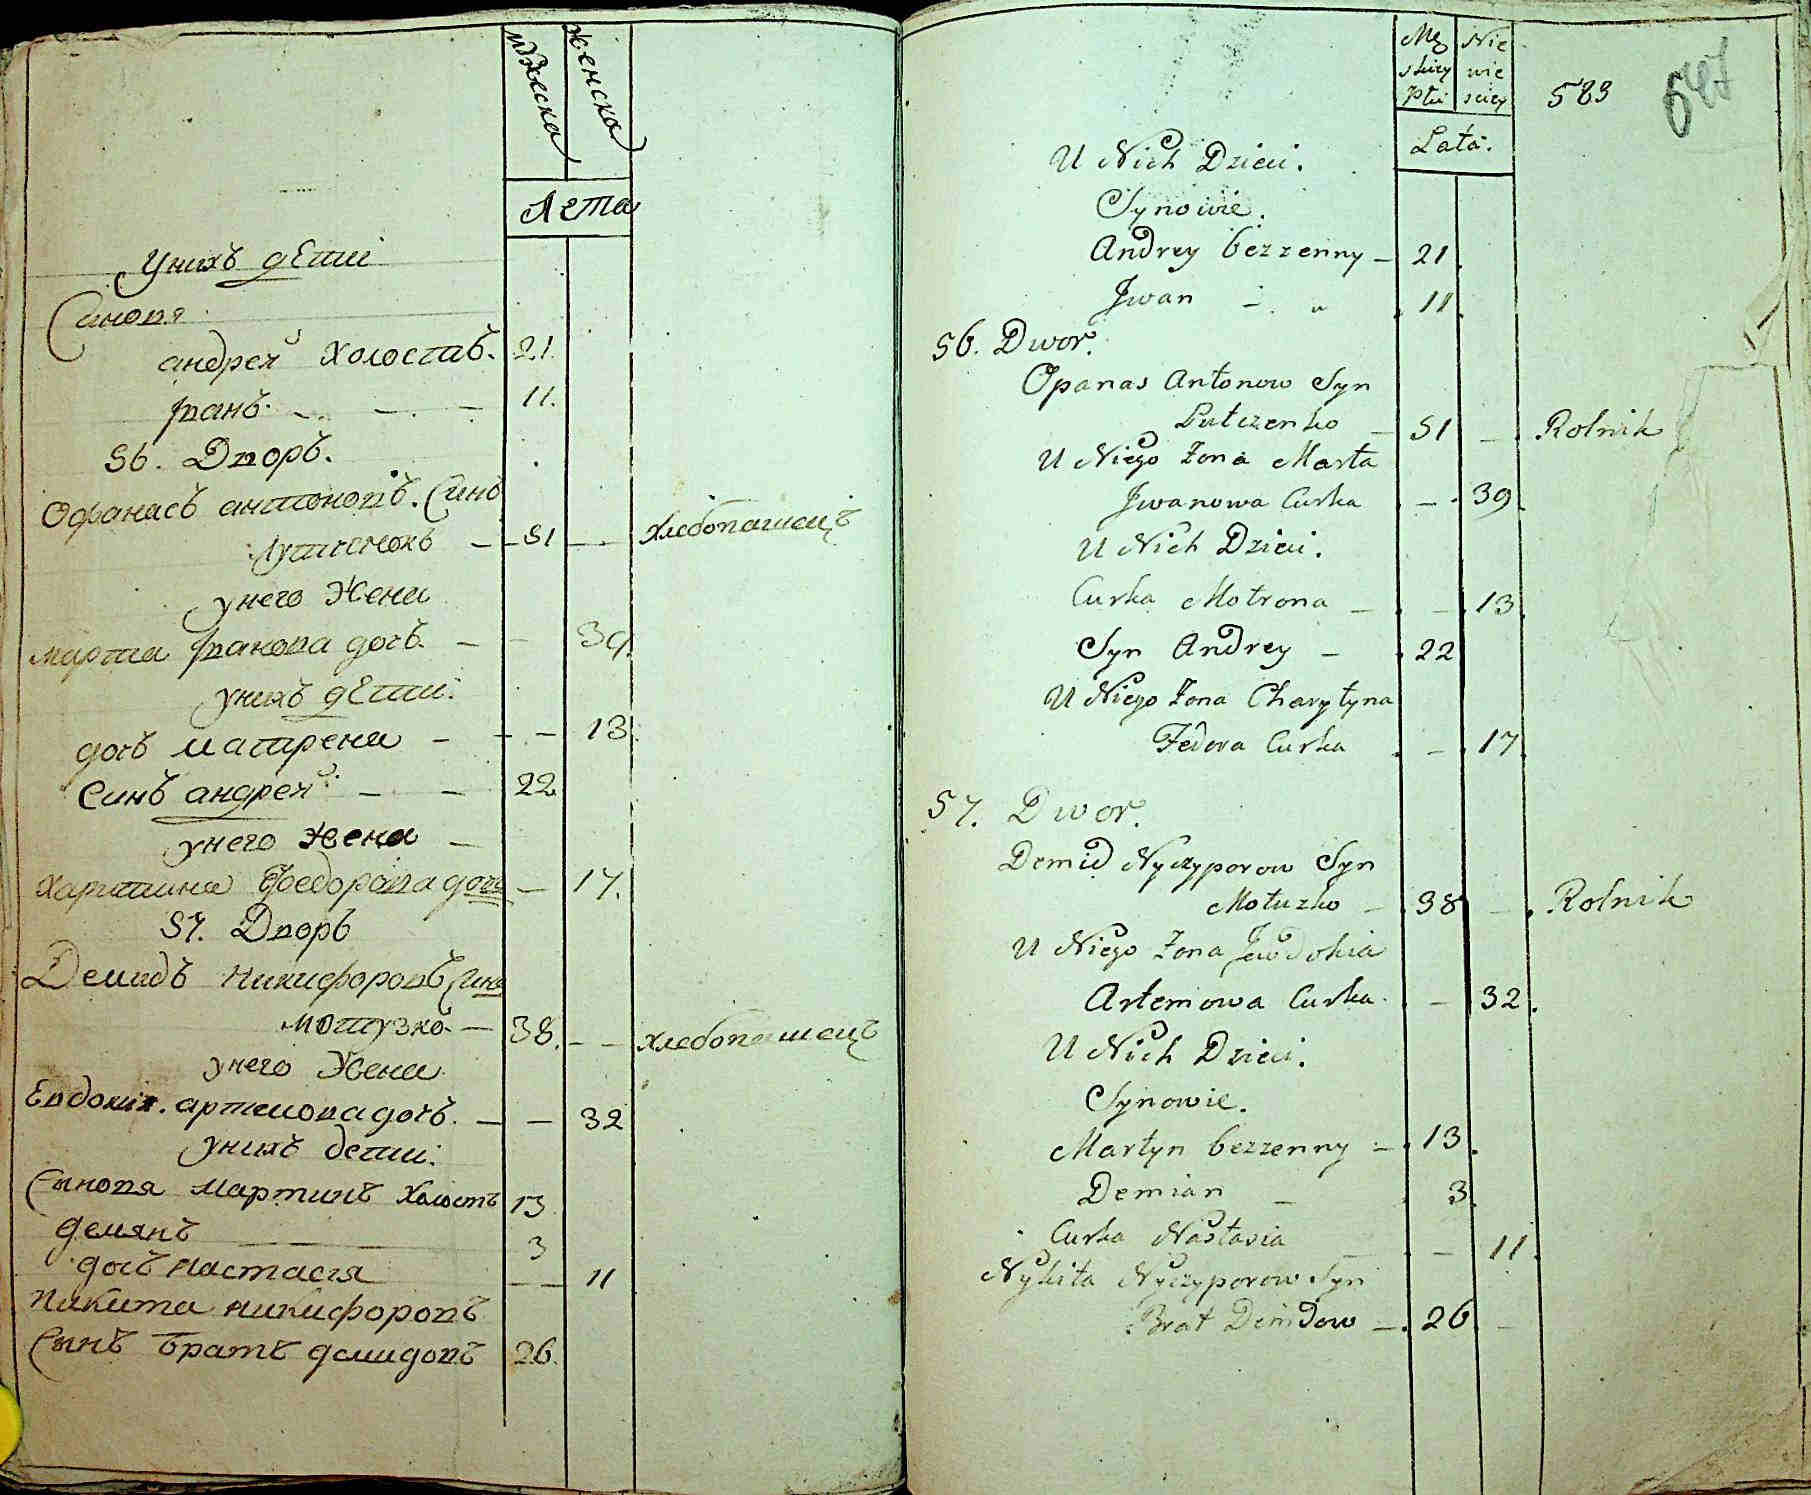 мужеска
женска
Лета
унихъ дѣти
Синовя
андрей холостъ. 21.
Iванъ. - - - 11.
56. Дворъ.
Офанасъ антоновъ. Синъ
Лутченокъ - - 51 - - хлебопашецъ
унего Жена
марта Iванова дочъ. - - 39.
унихъ дѣти:
дочъ матрена - - - 13.
Синъ андрей - - 22
унего жена -
харитина Федорова дочъ - 17.
57. Дворъ
Демидъ никифоровъ Синъ
мотузко. - 38. - - хлебопашецъ
унего Жена
Евдокия. артемова дочъ. - - 32
унихъ дети:
Сыновя мартинъ холостъ 13
демянъ 3
дочъ настасия - - 11
никита никифоровъ
Сынъ братъ демидовъ 26.
Mę Nie
skiey wie
Płci sciey
583 647
Lata.
U Nich Dzieci.
Synowie.
Andrey bezzenny - 21.
Jwan - „ 11.
56. Dwor.
Opanas Antonow Syn
Łutczenko - 51 - Rolnik
U Niego Zona Marta
Jwanowa Curka - 39.
U Nich Dzieci.
Curka Motrona - - 13.
Syn Andrey - 22
U Niego Zona Charytyna
Fedora Curka - 17.
57. Dwor.
Demid Nyczyporow Syn
Motuzko - 38 - Rolnik
U Niego Zona Jewdokia
Artemowa Curka - 32.
U Nich Dzieci.
Synowie.
Martyn bezzenny - 13.
Demian - 3.
Curka Nastasia - - 11.
Nykita Nyczyporow Syn
Brat Demidow - 26 -